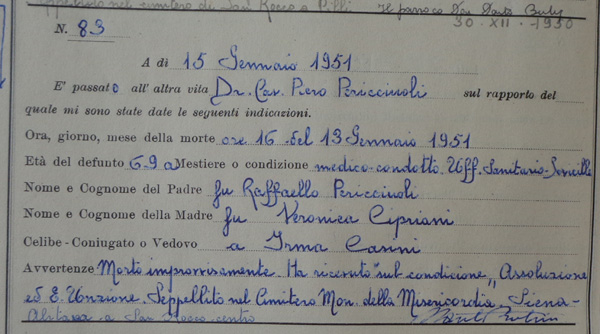 Seppellito nel cimitero di San Rocco a Pilli Il parroco Don
30 · XII · - 1950
N. 83
A dì 15 Gennaio 1951
E' passato all' altra vita Dr. Cav. Piero Periccioli sul rapporto del
quale mi sono state date le seguenti indicazioni.
Ora, giorno, mese della morte ore 16 del 13 Gennaio 1951
Età del defunto 69 a Mestiere o condizione medico-condotto Uff. Sanitario-Sovicille
Nome e Cognome del Padre fu Raffaello Periccioli
Nome e Cognome della Madre fu Veronica Cipriani
Celibe - Coniugato o Vedovo a Irma Casini
Avvertenze Morto improvvisamente Ha ricevuto "sub condicione" Assoluzione
ed E. Unzione. Seppellito nel Cimitero Mon. della Misericordia. Siena-
Abitava a San Rocco centro